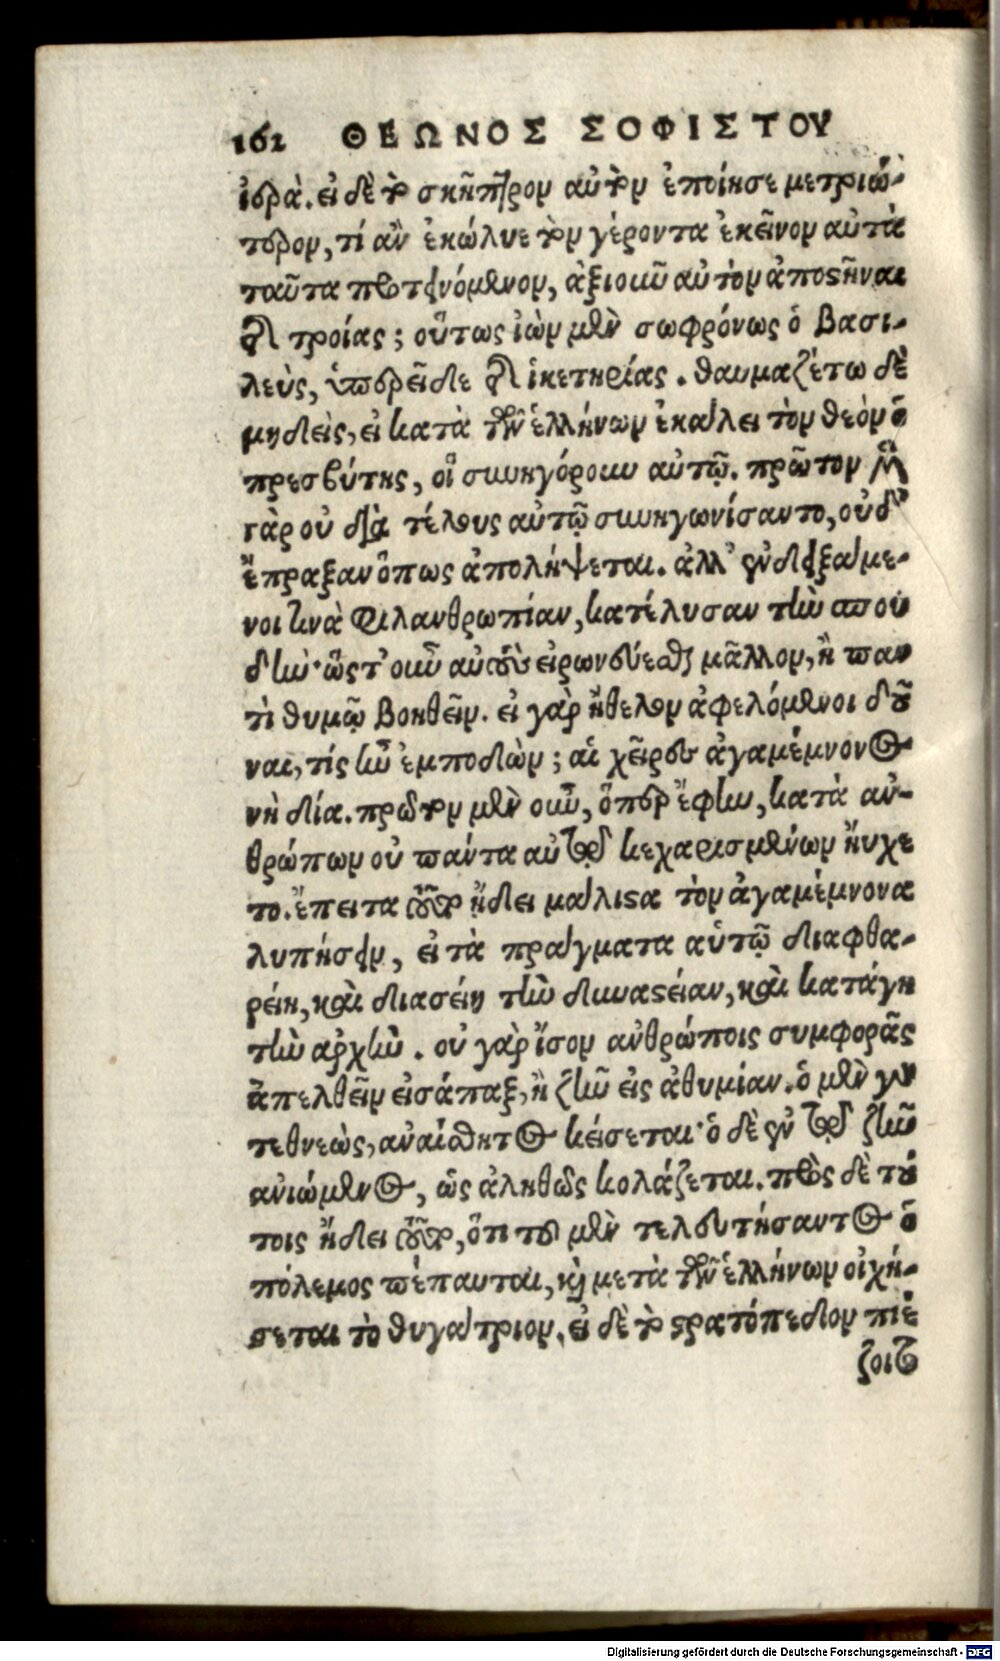 162 ΘΕΩΝΟΣ ΣΟΦΙΣΤΟΥ
ἱερά. εἰ δὲ τὸ σκῆπτρον αὐτὸν ἐποίησε μετριώ-
τερον, τί ἂν ἐκώλυε τὸν γέροντα ἐκεῖνον αὐτὰ
ταῦτα προτεινόμενον, ἀξιοῦν αὐτὸν ἀποστῆναι
τῆς τροίας; οὕτως ἰὼν μὲν σωφρόνως ὁ βασι-
λεὺς, ὑπερεῖδε τῆς ἱκετηρίας. θαυμαζέτω δὲ
μηδεὶς, εἰ κατὰ τῶν ἑλλήνων ἐκάλει τὸν θεὸν ὁ
πρεσβύτης, οἳ συνηγόρουν αὐτῷ. πρῶτον μὲν
γὰρ οὐ διὰ τέλους αὐτῷ συνηγωνίσαντο, οὐδ'
ἔπραξαν ὅπως ἀπολήψεται. ἀλλ' ἐνδειξάμε-
νοι τινὰ φιλανθρωπίαν, κατέλυσαν τὴν σπου
δήν· ὥστ' οὖν αὐτοὺς εἰρωνεύεσθαι μᾶλλον, ἢ παν
τὶ θυμῷ βοηθεῖν. εἰ γὰρ ἤθελον ἀφελόμενοι δοῦ
ναι, τίς ἦν ἐμποδών; αἱ χεῖρες ἀγαμέμνονος
νὴ δία. πρῶτον μὲν οὖν, ὅπερ ἔφην, κατὰ ἀν-
θρώπων οὐ πάντα αὐτῷ κεχαρισμένων ηὔχε
το. ἔπειτα τοῦτο ᾔδει μάλιστα τὸν ἀγαμέμνονα
λυπήσειν, εἰ τὰ πράγματα αὐτῷ διαφθα-
ρείη, καὶ διασείη τὴν δυναστείαν, καὶ κατάγη
τὴν ἀρχήν. οὐ γὰρ ἴσον ἀνθρώποις συμφορᾶς
ἀπελθεῖν εἰσάπαξ, ἢ ζῆν εἰς ἀθυμίαν. ὁ μὲν γὰρ
τεθνεὼς, ἀναίσθητος κείσεται· ὁ δὲ ἐν τῷ ζῆν
ἀνιώμενος, ὡς ἀληθῶς κολάζεται. πρὸς δὲ τού
τοις ᾔδει τοῦτο, ὅτι τοῦ μὲν τελευτήσαντος ὁ
πόλεμος πέπαυται, καὶ μετὰ τῶν ἑλλήνων οἰχή-
σεται τὸ θυγάτριον, εἰ δὲ τὸ στρατόπεδον πιέ
ζοιτο